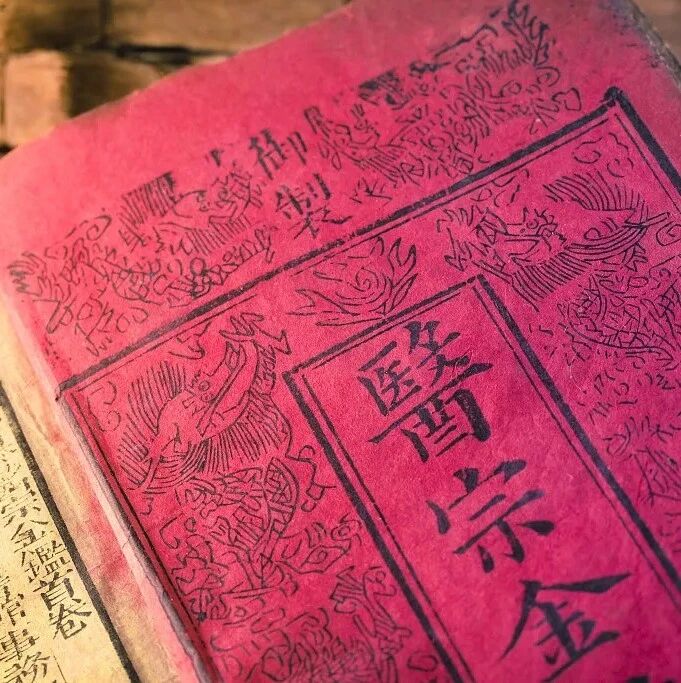 御製
醫宗金
宗金鑑首卷
常事務